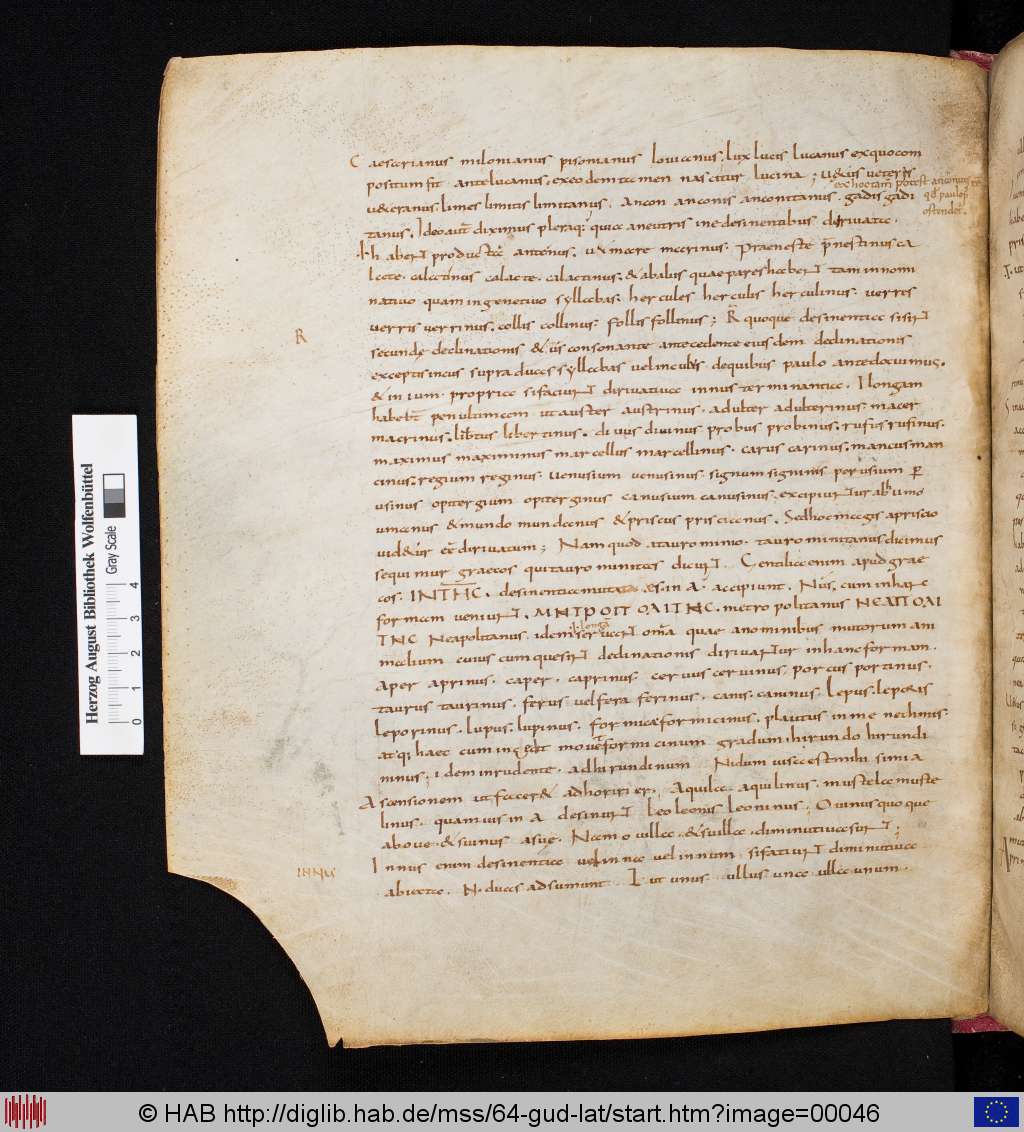 Caesarianus milonianus pisonianus lovicanus. lux lucis lucanus exquocom
positum fit antelucanus. exeodem tamen nascitur lucina; u&us veteris
exhoctam potest
u&eranus. limes limitis limitanus. Ancon anconis anconitanus. gadis gadi
tanus. Ideo aut diximus pleraq; quia aneutris ine desinentibus dirivatio.
ostender.
I. habent productā antoninus. uxmare marinus. Praeneste p̄nestinus ca
lacte. calactinus calacte. calactinus. & abalus quae pares habent tam innomi
nativo quam ingenetivo syllabas. hercules herculis herculinus. verres
verris verrinus. collis collinus. follis follinus; R quoque desinentia si sint
R
secundę declinationis & us consonante antecedente eiusdem declinationis
exceptis in cus supra duas syllabas vel in culus dequibus paulo ante docuimus.
& in ium. propria si faciunt dirivativa innus terminantia. I longam
habebt penultimam ut auster austrinus. adulter adulterinus. macer
macrinus. libertus libertinus. divus divinus probus probinus. rufus rufinus.
maximus maximinus marcellus marcellinus. carus carinus. mancus man
cinus. regium reginus. uenusium venusinus. signum signinus perusium per
usinus opitergium opiterginus canusium canusinus. excipiuntur ab humo
umanus & mundo mundanus & priscus priscianus. Sed hoc magis aprisco
vid&ur eē dirivatum; Nam quod atauro minio. tauro minitanus dicimus
sequimur graecos qui tauro minitas dicunt. Gentilia enim apud grae
cos. INTHC. desinentia mutata es. in A. accipiunt. Nus. cum inhac
formam veniunt. ΜΗΤΡΟΠΟΛΙΤΗC. metropolitanus ΝΕΑΠΟΛΙ
ΤΗC Neapolitanus. idem servant omīa quae anominibus mutorum ani
I. longā
malium cuius cumque sint declinationis dirivantur inhanc formam.
Aper aprinus. caper. caprinus cervus cervinus. porcus porcinus.
taurus taurinus. ferus vel fera ferinus. canis. caninus. Lepus. leporis
leporinus. lupus. lupinus. formica formicinus. plautus in me nechmis.
atq; haec cum inquit move formicinum gradum. hirundo hirundi
ninus. idem inrudente. ad hirundinum Nidum visa est mihi simia
Ascensionem ut facer& adhoriri er. Aquila aquilinus. mustela muste
linus. quamvis in A desinunt Leo leonis leoninus; Ovinus quoque
ab ove. & suinus asue. Nam ovilla. & suilla. diminutiva sunt;
Innus enim desinentia vel in na vel in num. si faciunt diminutiva
INNUS
abiecta. N. duas adsumunt L ut unus ullus una ulla unum.
Herzog August Bibliothek Wolfenbüttel
Gray Scale
0 1 2 3 4
© HAB http://diglib.hab.de/mss/64-gud-lat/start.htm?image=00046